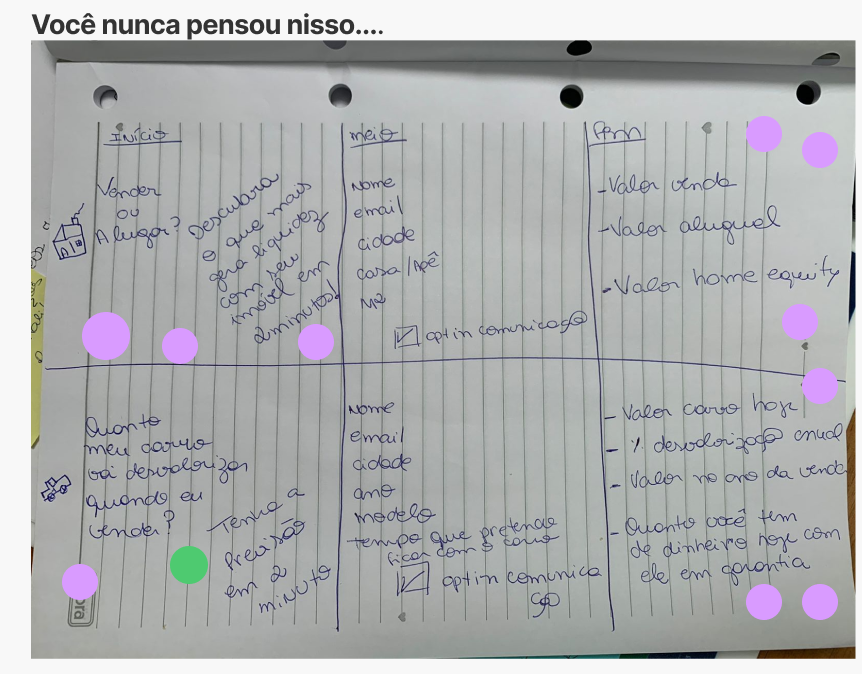 Você nunca pensou nisso....
Início
Vender
ou
Alugar?
Descubra
o que mais
gera liquidez
com seu
imóvel em
2 minutos!
meio
Nome
email
cidade
casa/Apê
M2
optin comunicação
Fim
- Valor venda
- Valor aluguel
- Valor home equity
Quanto
meu carro
vai desvalorizar
quando eu
vender?
Tenha a
Previsão
em 2
minuto
Nome
email
cidade
ano
modelo
tempo que pretende
ficar com o carro
optin comunica
ção
- Valor carro hoje
- % desvalorização anual
- Valor no ano da venda
- Quanto você tem
de dinheiro hoje com
ele em garantia